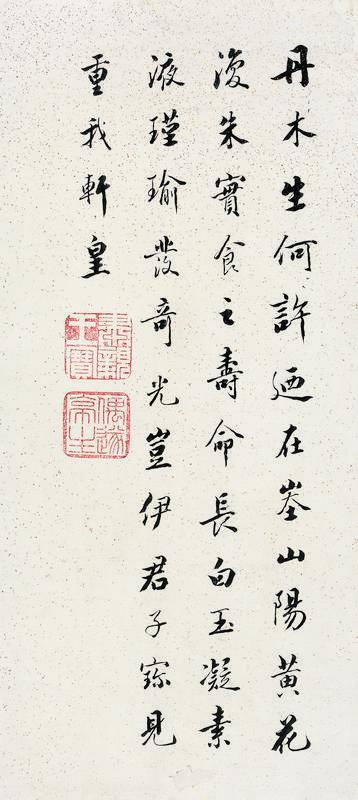 丹木生何許迺在峚山陽黃花
復朱實食之壽命長白玉凝素
液瑾瑜發奇光豈伊君子寶見
重我軒皇
親王寶